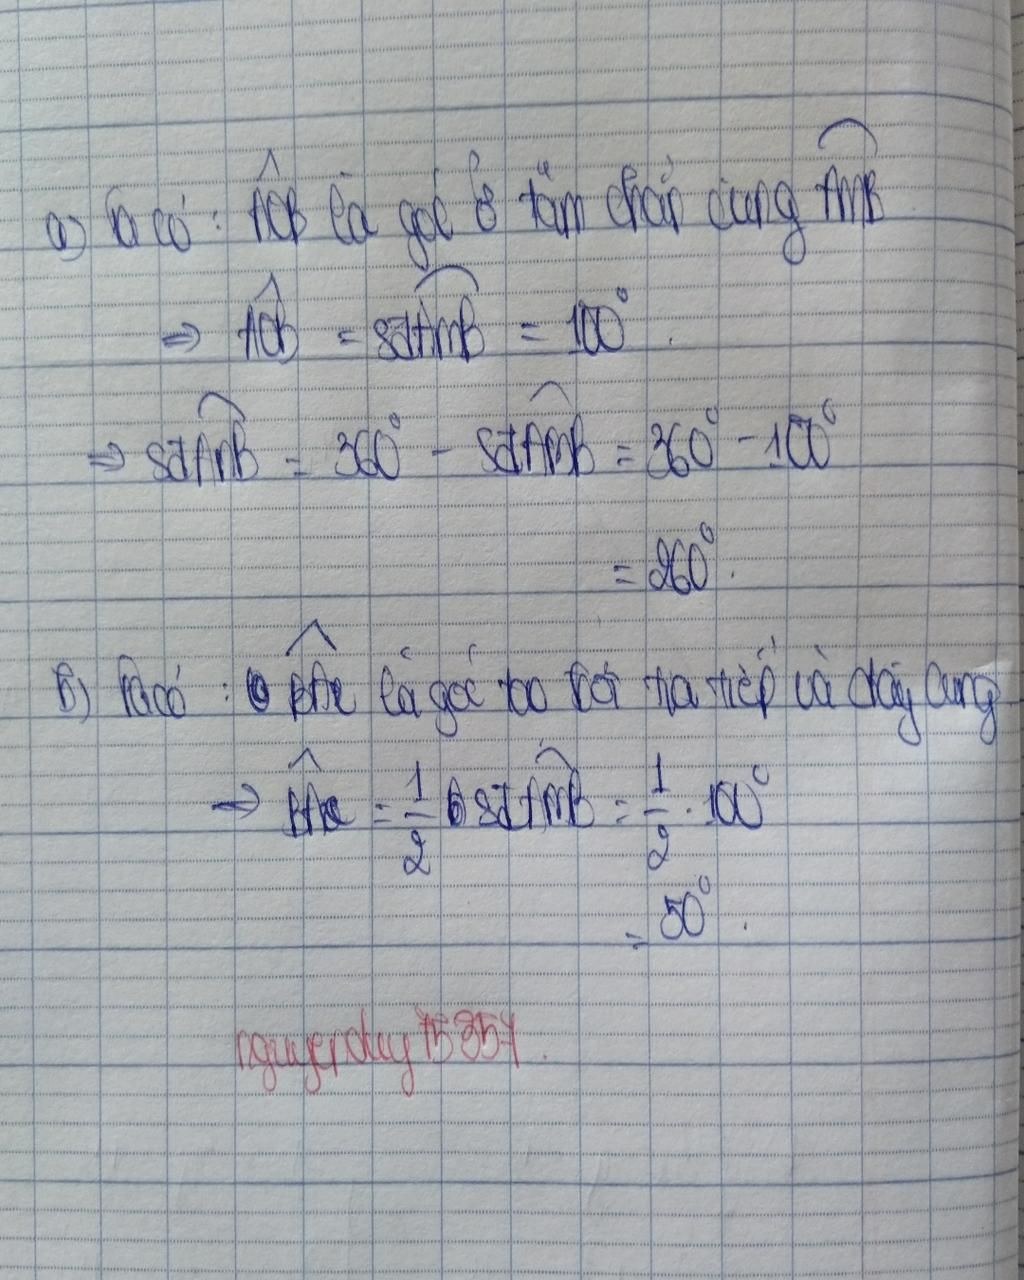 a) Ta có : \widehat{AOB} là góc ở tâm chắn cung \overset{\frown}{AmB}
=> \widehat{AOB} = sđ\overset{\frown}{AmB} = 100° .
=> sđ\overset{\frown}{AnB} = 360° - sđ\overset{\frown}{AmB} = 360° - 100°
= 260° .
b) Ta có : \widehat{BAx} là góc tạo bởi tia tiếp và dây cung
=> \widehat{BAx} = \frac{1}{2} sđ\overset{\frown}{AmB} = \frac{1}{2} . 100°
= 50° .
nguyenduy75357 .